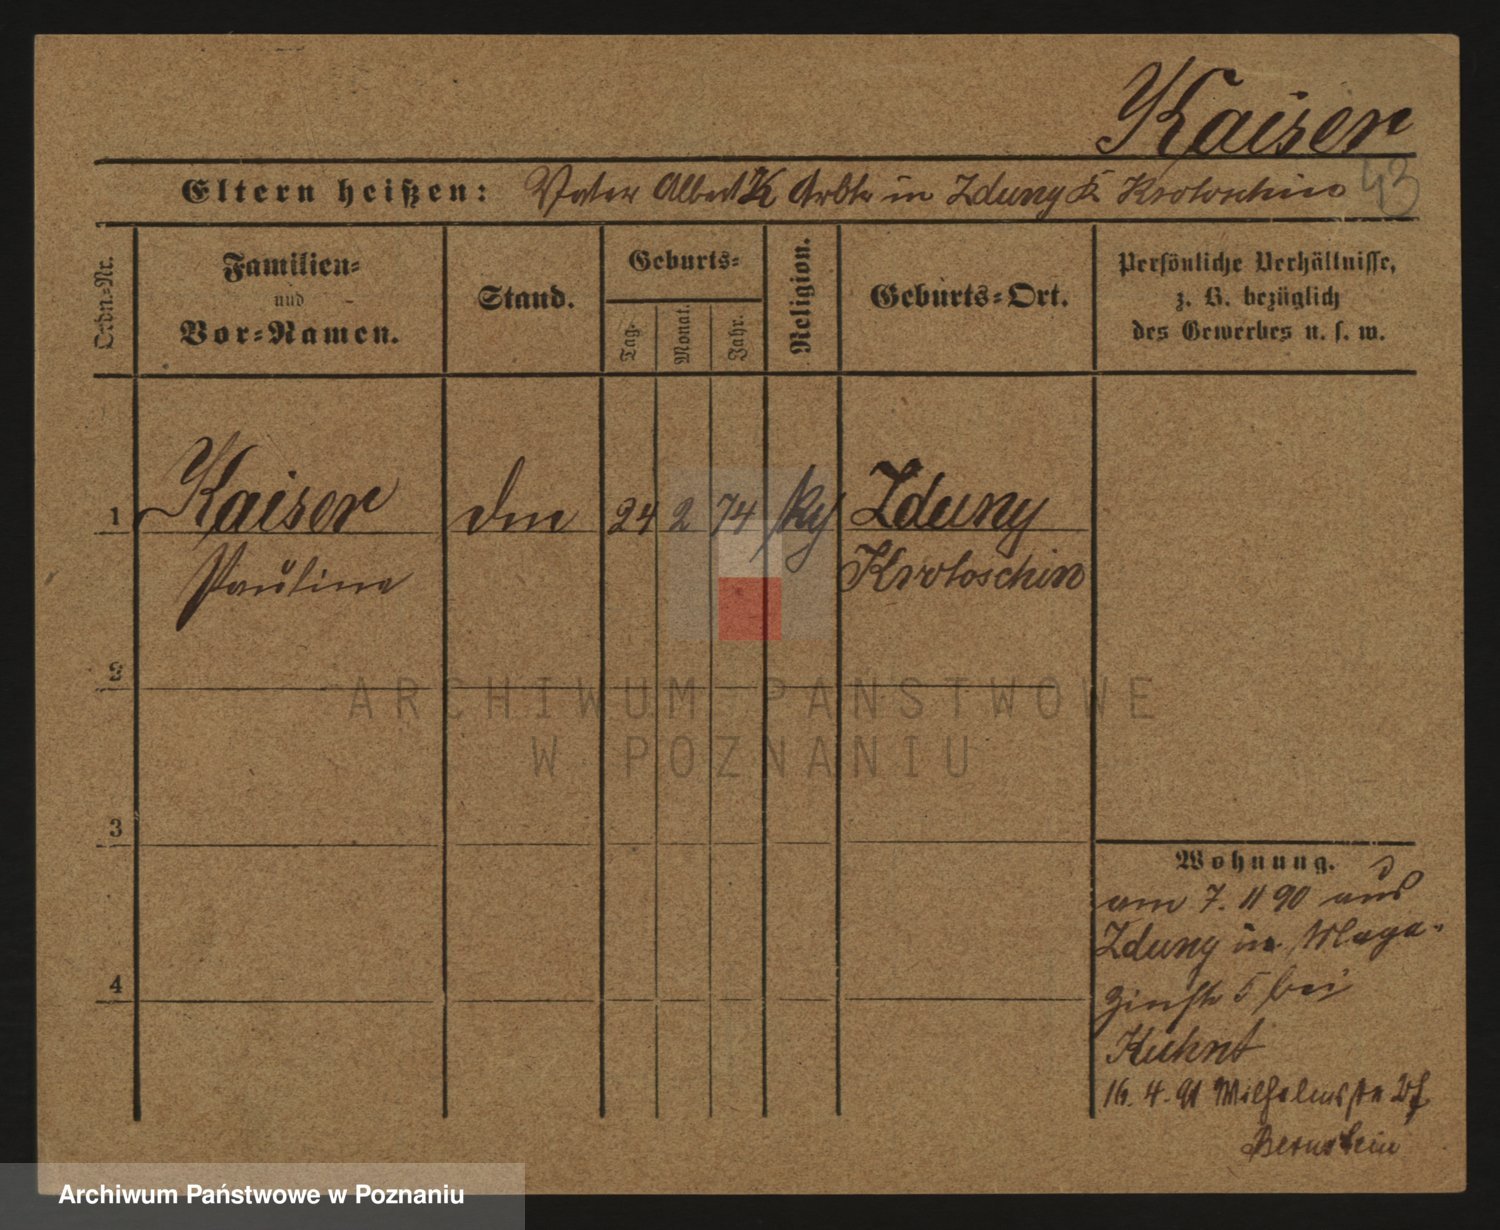 Kaiser
43
Eltern heißen: Vater Albert K Arbtr in Zduny Kr Krotoschin
Ordn.-Nr.
Familien-
und
Vor-Namen.
Stand.
Geburts-
Tag.
Monat.
Jahr.
Religion.
Geburts-Ort.
Persönliche Verhältnisse,
z. B. bezüglich
des Gewerbes u. s. w.
1 Kaiser 24 2 74 Zduny
Pauline Krotoschin
2
3
4
Wohnung.
am 7. 11 90 aus
Zduny in Maga-
zinstr 5 bei
Kuhnt
16. 4. 91 Wilhelmstr
Bernstein
ARCHIWUM PAŃSTWOWE
W POZNANIU
Archiwum Państwowe w Poznaniu